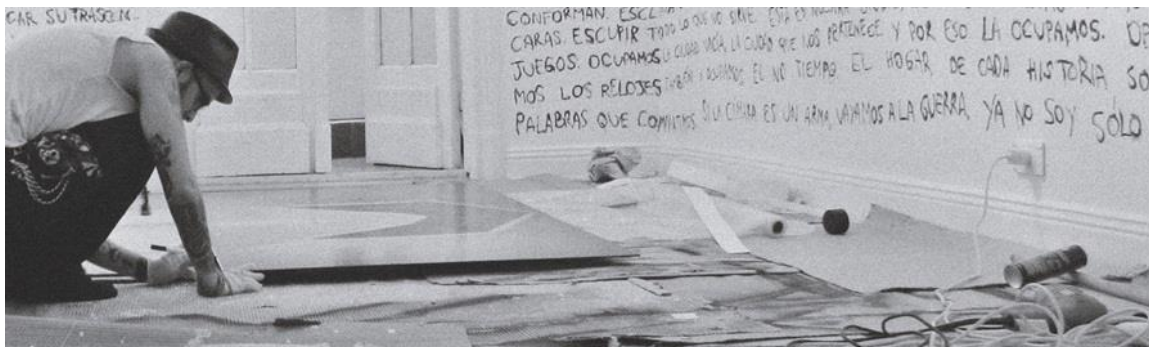 CAR SU TRASCEN
CONFORMAN. ESCU
CARAS. ESCUPIR TODO LO QUE NO SIRVE. ESTA ES NUESTRA
JUEGOS. OCUPAMOS LA CIUDAD VACÍA, LA CIUDAD QUE NOS PERTENECE Y POR ESO LA OCUPAMOS. DE
MOS LOS RELOJES EL NO TIEMPO. EL HOGAR DE CADA HISTORIA SO
PALABRAS QUE COMPARTIMOS. SI LA CÁMARA ES UN ARMA, VAYAMOS A LA GUERRA. YA NO SOY SÓLO